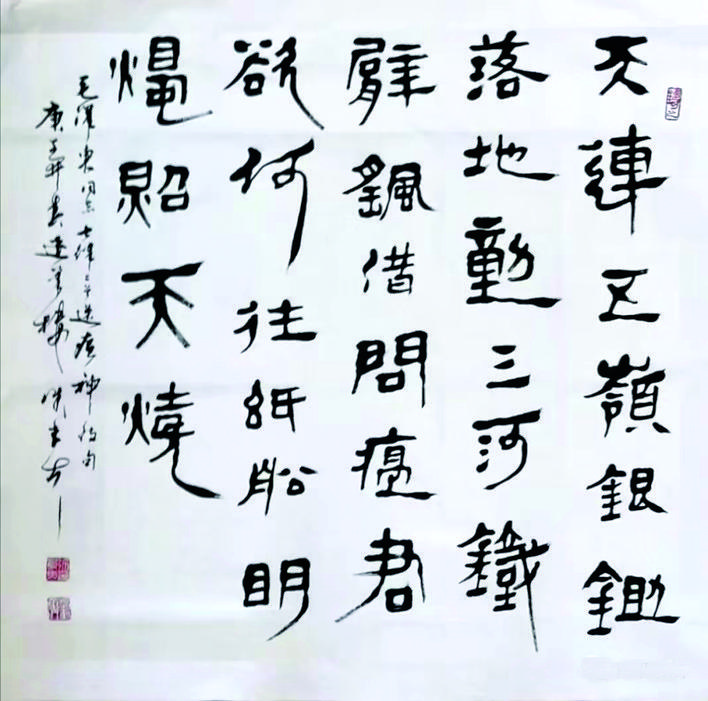 天連五嶺銀鋤
落地動三河鐵
臂颻借問瘟君
欲何往紙船明
燭照天燒
毛澤東同志七律二首送瘟神
庚子年春